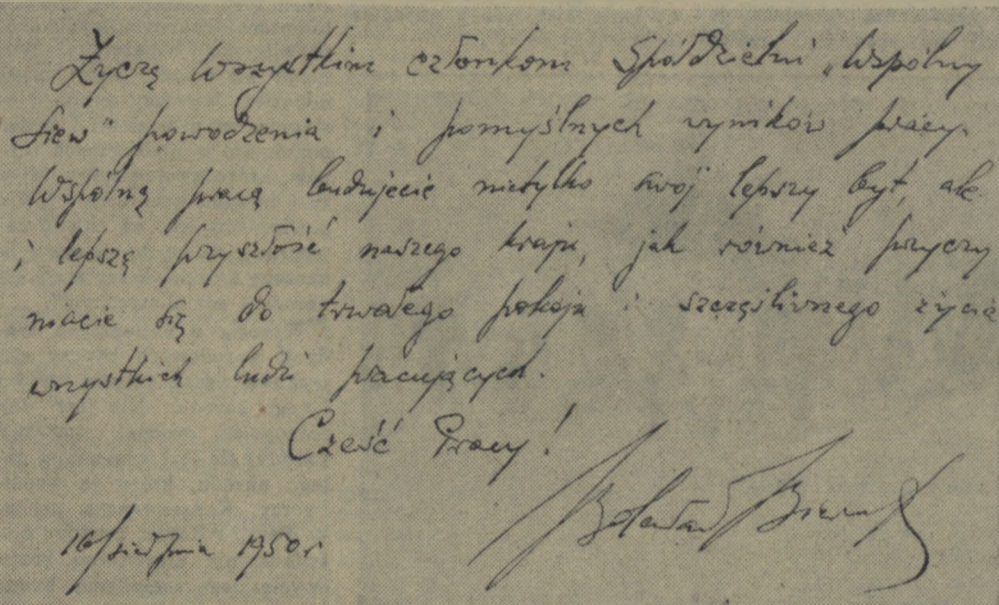 Życzę wszystkim członkom Spółdzielni „Wspólny
Siew" powodzenia i pomyślnych wyników pracy.
Wspólną pracą budujecie nietylko swój lepszy byt, ale
i lepszą przyszłość naszego kraju, jak również przyczy
niacie się do trwałego pokoju i szczęśliwszego życia
wszystkich ludzi pracujących.
Cześć Pracy!
Bolesław Bierut
16/sierpnia 1950 r